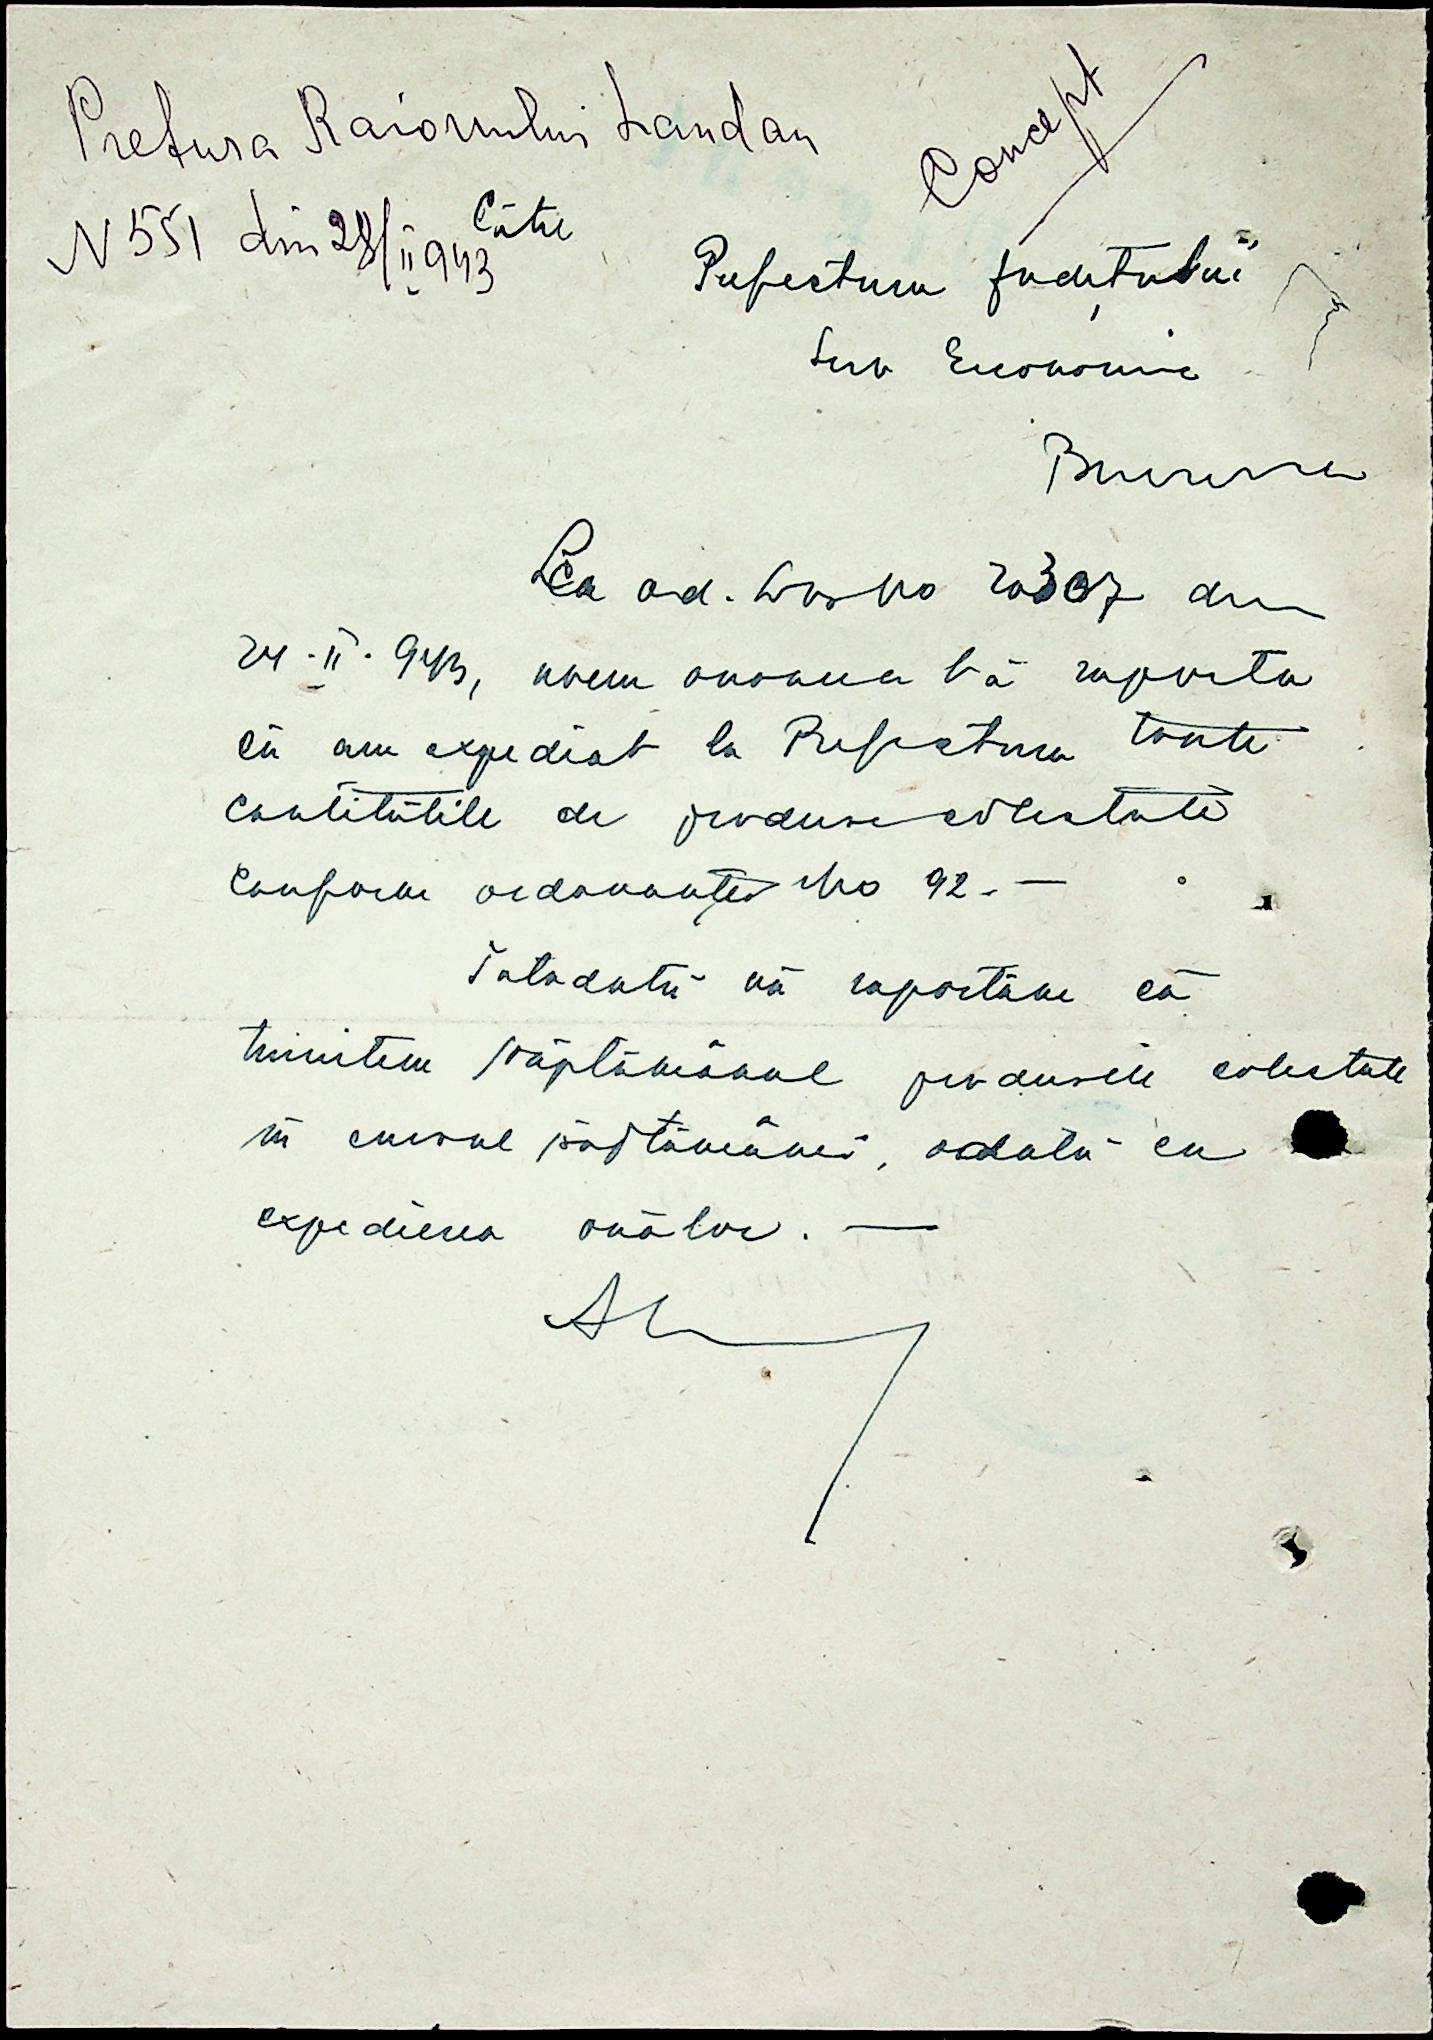 Pretura Raionului Landau
Concept
N 551 din 28/II 943
Către
Prefectura Județului
Serv Economic
La ord. Dvs No 20307 din
24.II.943, avem onoarea vă raporta
că am expediat la Prefectura toate
cantitățile de produse colectate
conform ordonanței No 92.—
Totodată vă raportăm că
trimitem săptămânal produsele colectate
în cursul săptămânei, odată cu
expedierea ouălor.—